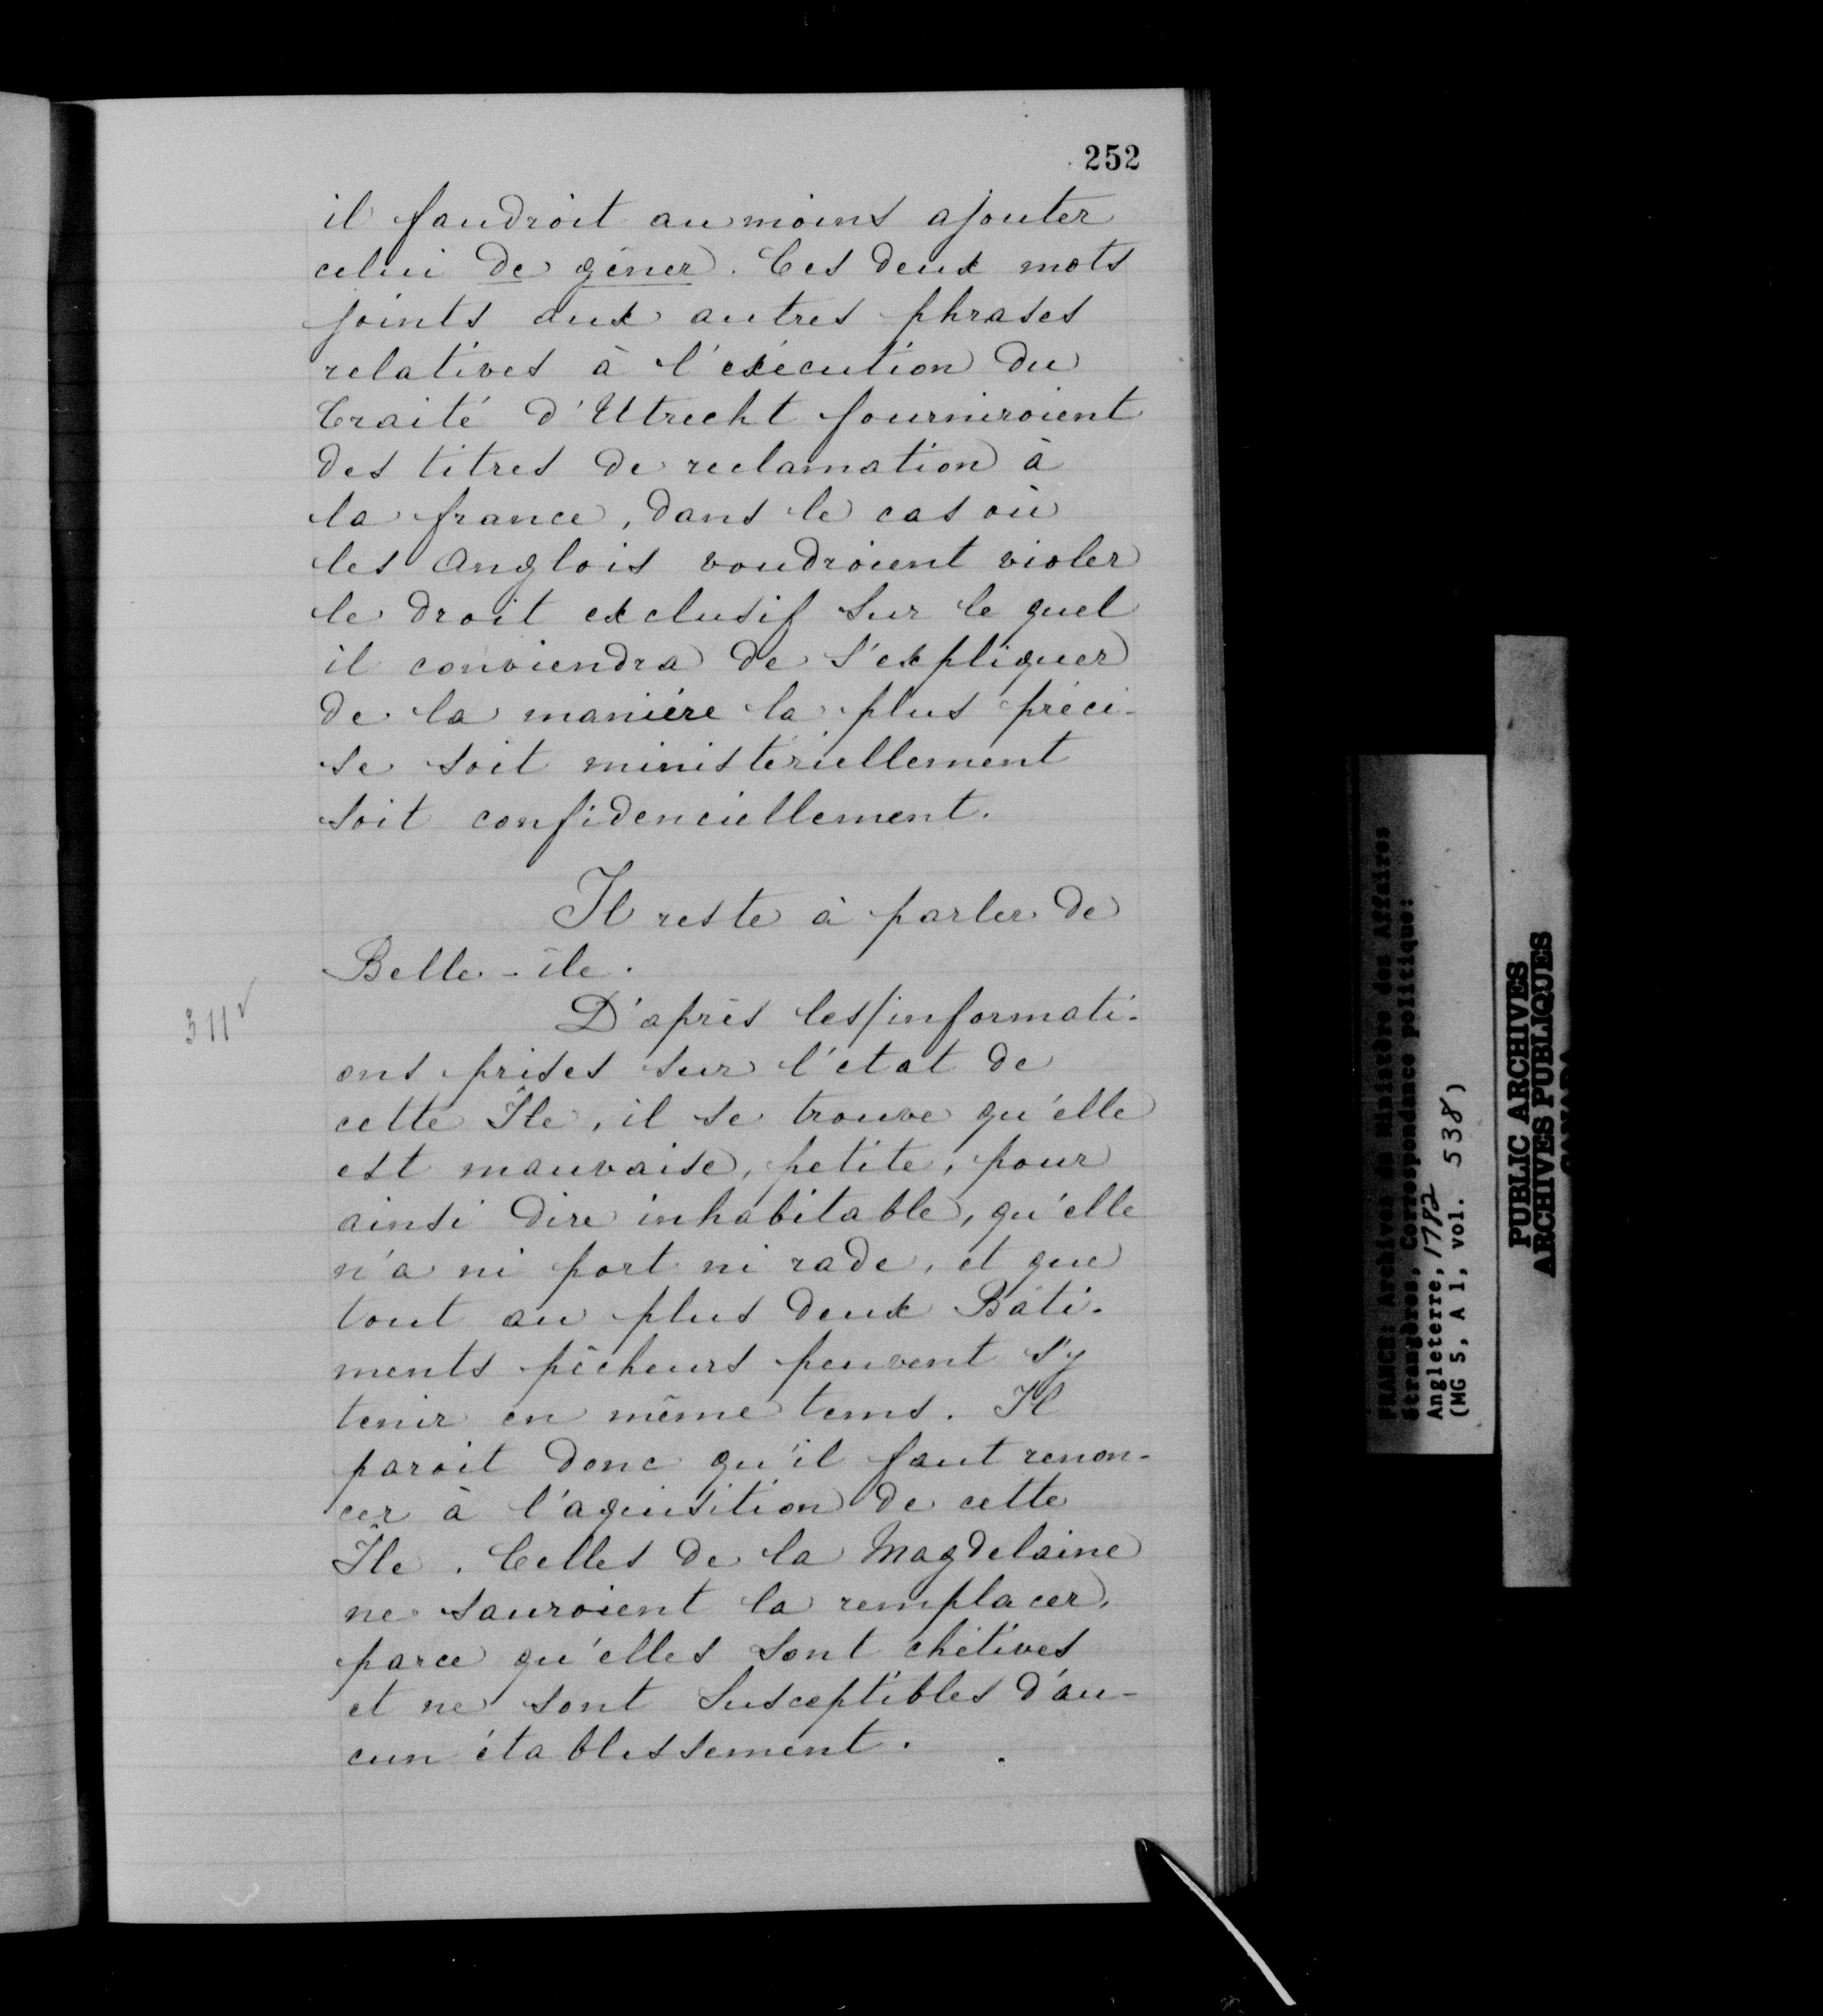 252
il faudroit au moins ajouter
celui de gêner. Ces deux mots
joints aux autres phrases
relatives à l'exécution du
Traité d'Utrecht fourniroient
des titres de reclamation à
la france, dans le cas où
les Anglois voudroient violer
le droit exclusif sur le quel
il conviendra de s'expliquer
de la manière la plus préci-
se soit ministériellement
soit confidenciellement.
Il reste à parler de
Belle-île.
311v
D'après les/informati-
ons prises sur l'état de
cette Île, il se trouve qu'elle
est mauvaise, petite, pour
ainsi dire inhabitable, qu'elle
n'a ni port ni rade, et que
tout au plus deux Bâti-
ments pêcheurs peuvent s'y
tenir en même tems. Il
paroit donc qu'il faut renon-
cer à l'aquisition de cette
Île. Celles de la Magdelaine
ne sauroient la remplacer,
parce qu'elles sont chétives
et ne sont susceptibles d'au-
cun établissement.
FRANCE: Archives du Ministère des Affaires
étrangères, Correspondance politique:
Angleterre, 1782
(MG 5, A 1, vol. 538)
PUBLIC ARCHIVES
ARCHIVES PUBLIQUES
CANADA